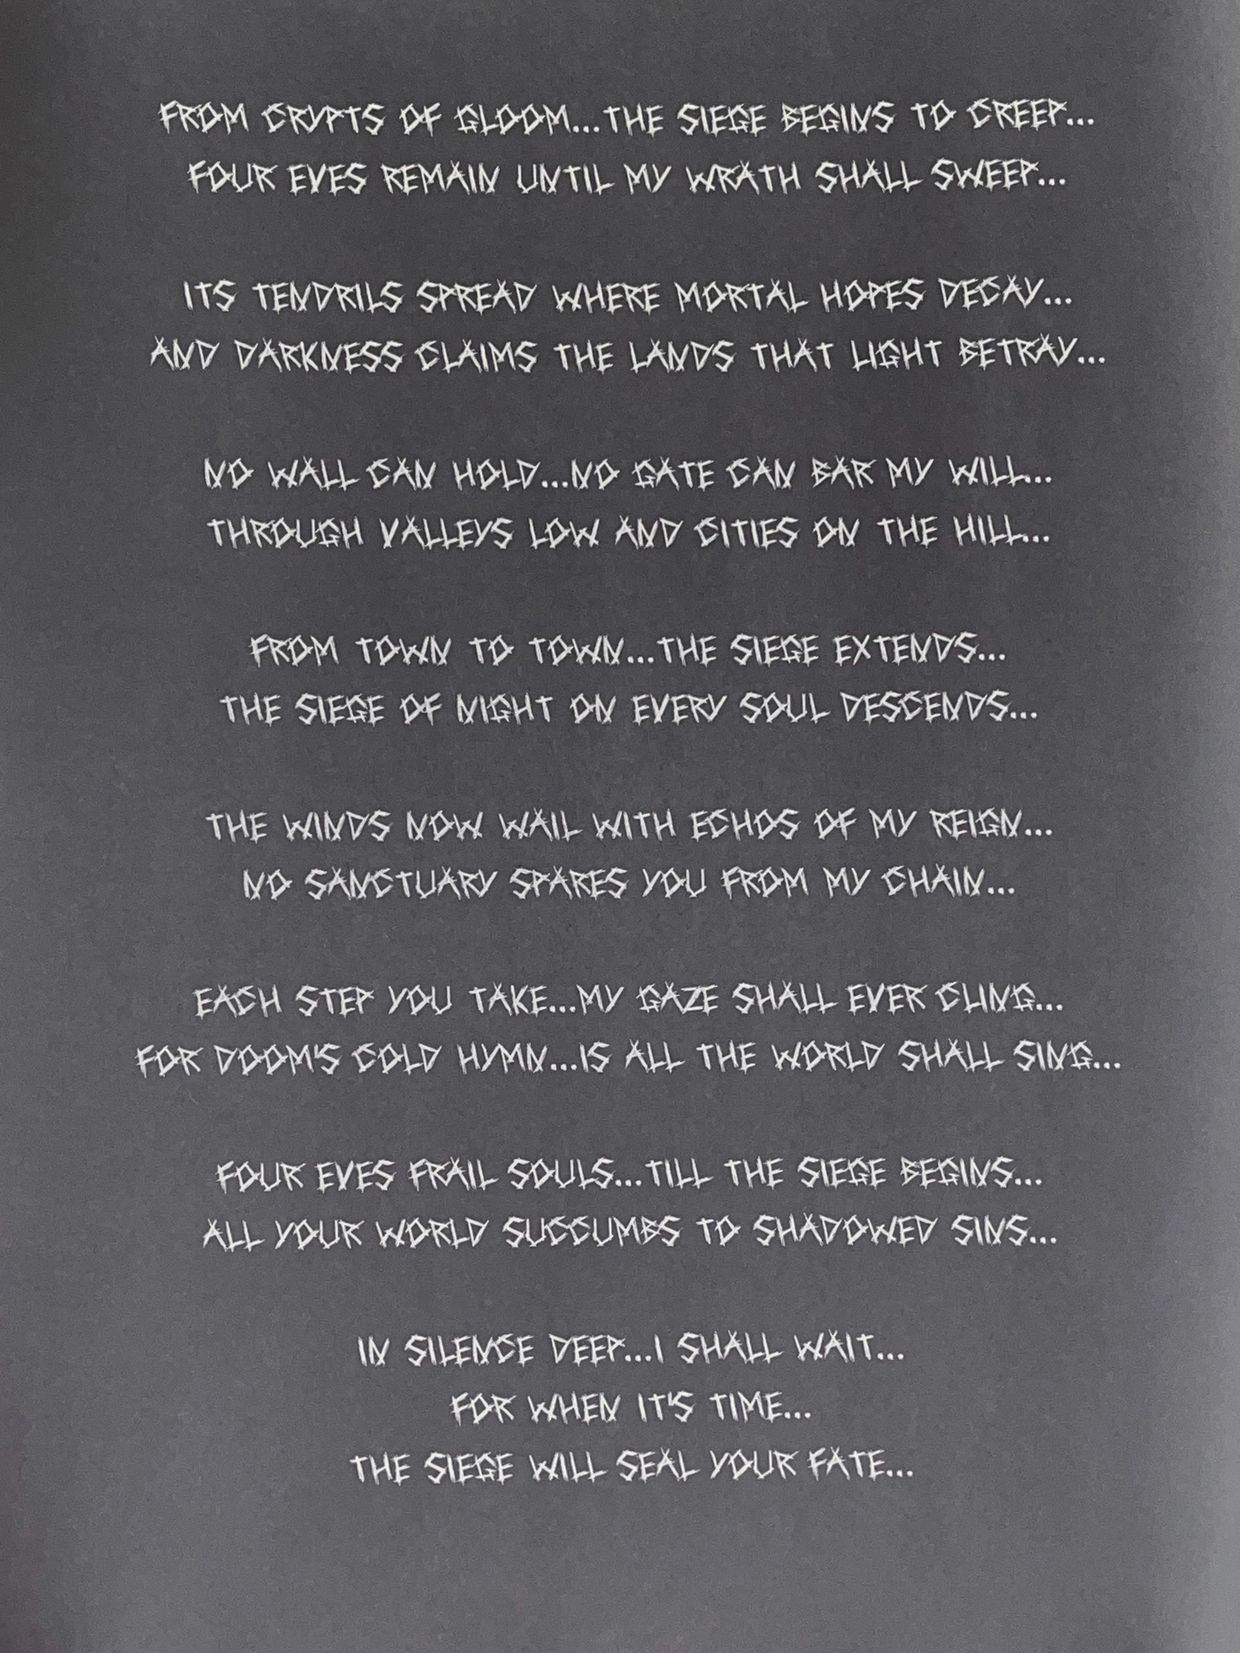 FROM CRYPTS OF GLOOM...THE SIEGE BEGINS TO CREEP...
FOUR EVES REMAIN UNTIL MY WRATH SHALL SWEEP...
ITS TENDRILS SPREAD WHERE MORTAL HOPES DECAY...
AND DARKNESS CLAIMS THE LANDS THAT LIGHT BETRAY...
NO WALL CAN HOLD...NO GATE CAN BAR MY WILL...
THROUGH VALLEYS LOW AND CITIES ON THE HILL...
FROM TOWN TO TOWN...THE SIEGE EXTENDS...
THE SIEGE OF NIGHT ON EVERY SOUL DESCENDS...
THE WINDS NOW WAIL WITH ECHOS OF MY REIGN...
NO SANCTUARY SPARES YOU FROM MY CHAIN...
EACH STEP YOU TAKE...MY GAZE SHALL EVER CLING...
FOR DOOM'S COLD HYMN...IS ALL THE WORLD SHALL SING...
FOUR EVES FRAIL SOULS...TILL THE SIEGE BEGINS...
ALL YOUR WORLD SUCCUMBS TO SHADOWED SINS...
IN SILENCE DEEP...I SHALL WAIT...
FOR WHEN IT'S TIME...
THE SIEGE WILL SEAL YOUR FATE...